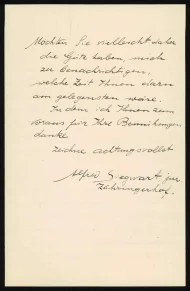 Möchten Sie vielleicht daher
die Güte haben, mich
zu benachrichtigen,
welche Zeit Ihnen
am gelegensten wäre.
Indem ich Ihnen zum
voraus für Ihre Bemühungen
danke
zeichne achtungsvollst
Alfred Siegwart jun
Zähringerhof.